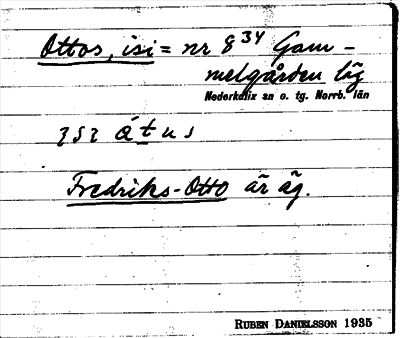 Ottos, isi = nr 8³⁴ Gam-
melgården läg
Nederkalix sn o. tg. Norrb. län
átus
Fredriks-Otto är äg.
RUBEN DANIELSSON 1935